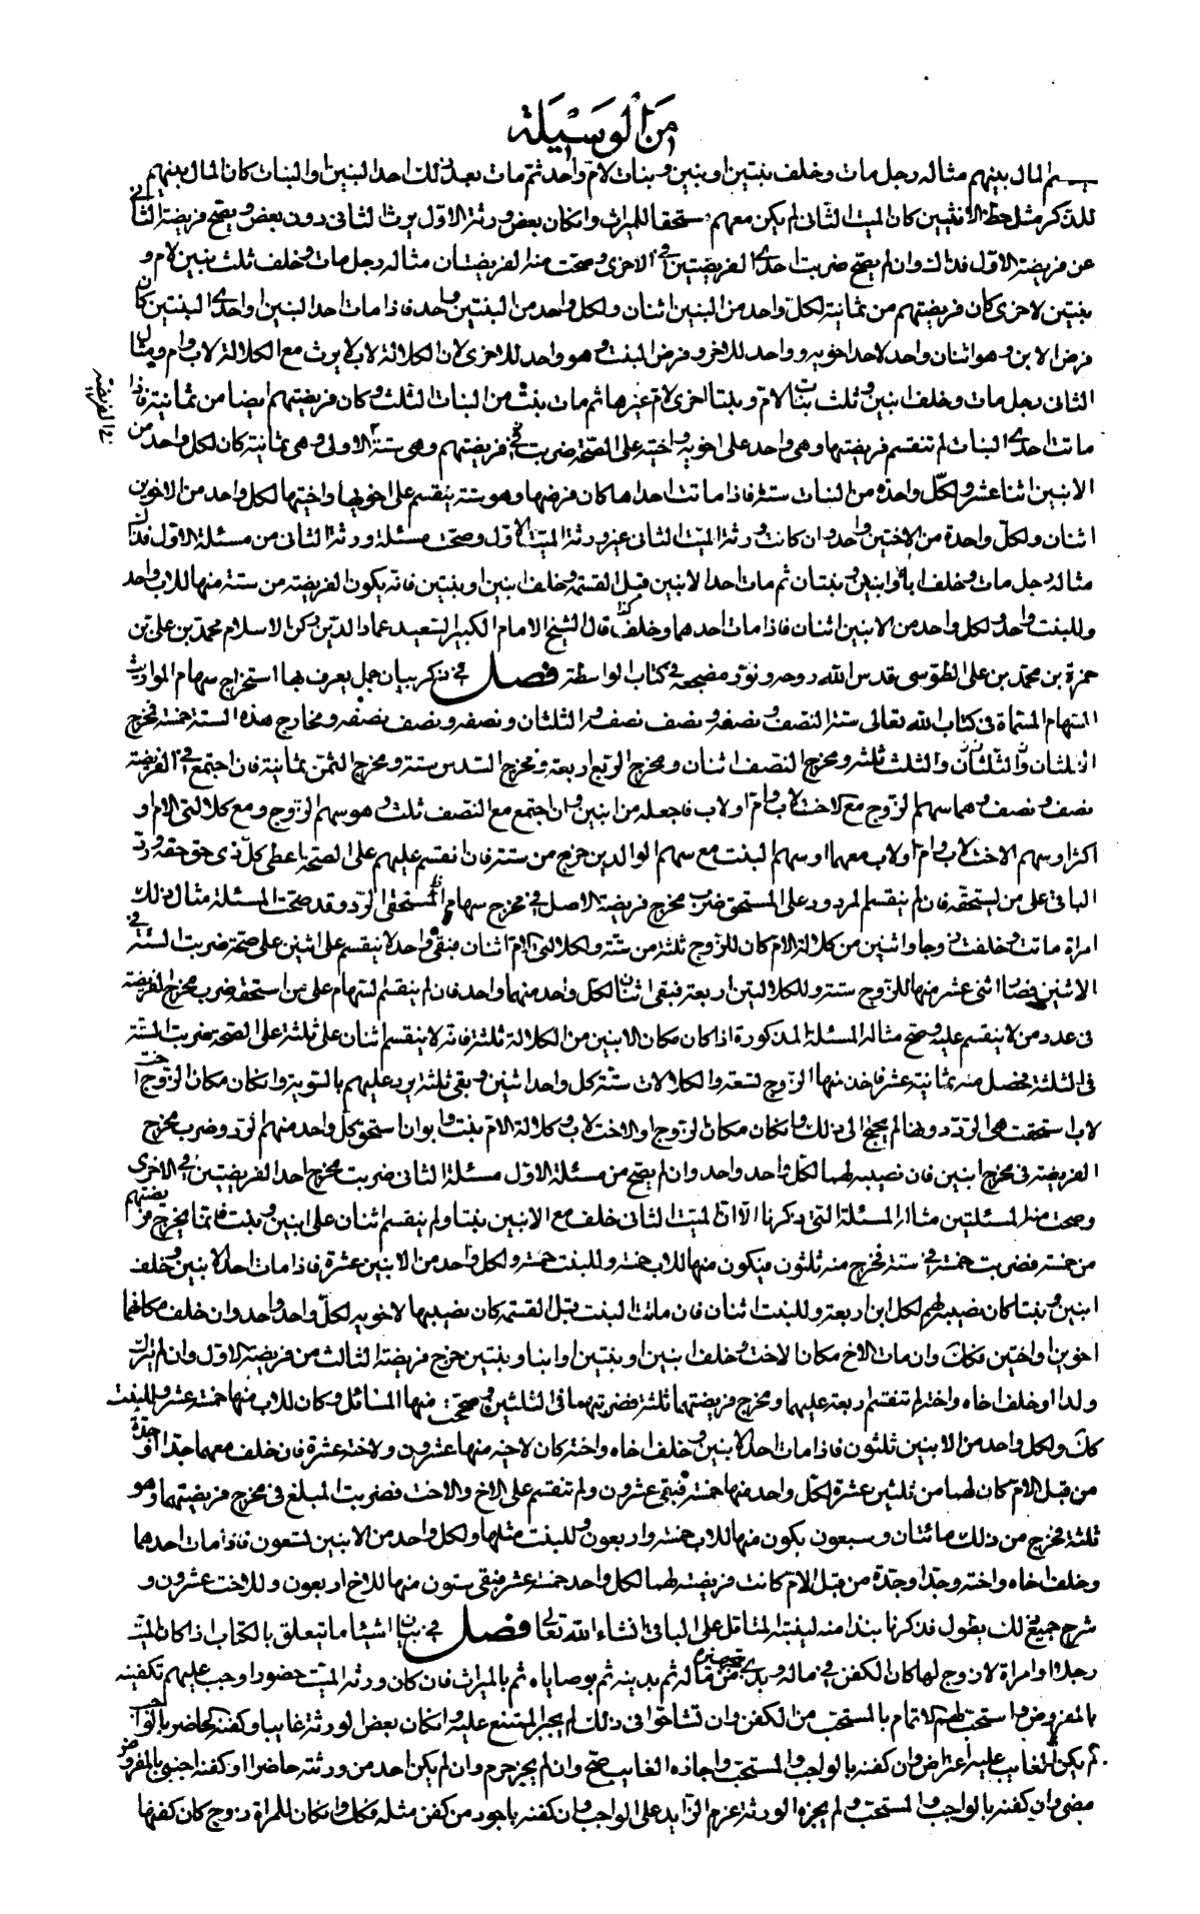 من الوسيلة
المال بينهم مثاله رجل مات وخلف بنتين او بنين وبنات لام واحد ثم مات بعد ذلك احد البنين او البنات كان المال بينهم
للذكر مثل حظ الانثيين كان الميت الثانى لم يكن معهم مستحقا للميراث وان كان بعض ورثة الاول يرث الثانى دون بعض ويصح فريضة الثانى
عن فريضة الاول فذاك وان لم يصح ضربت احدى الفريضتين فى الاخرى وصحت منه الفريضتان مثاله رجل مات وخلف ثلث بنين لام و
بنتين لاخرى كان فريضتهم من ثمانية لكل واحد من البنين اثنان ولكل واحد من البنتين واحد فاذا مات احد البنين او احدى البنتين كان
فرض الابن وهو اثنان واحد لاحد اخويه وواحد للاخر وفرض البنت وهو واحد للاخرى لان الكلالة لاب لا يرث مع الكلالة لاب وام ومثال
الثانى رجل مات وخلف ابنين وثلث بنات لام وبنتا اخرى لام غيرها ثم مات بنت من البنات الثلث وكان فريضتهم ايضا من ثمانية فاذا
ماتت احدى البنات لم تنقسم فريضتها وهى واحد على اخويه واخته على الصحة ضربت فريضتهم وهى ستة فى الاولى وهى ثمانية كان لكل واحد من
الابنين اثنا عشر ولكل واحدة من البنات ستة فاذا ماتت احداها كان فرضها وهو ستة ينقسم على اخويها واختها لكل واحد من الاخوين
اثنان ولكل واحدة من الاختين واحد وان كانت ورثة الميت الثانى غير ورثة الميت الاول وصحت مسئلة ورثة الثانى من مسئلة الاول فذاك
مثاله رجل مات وخلف ابا وابنين وبنتان ثم مات احد الابنين قبل القسمة وخلف ابنين او بنتين فانه يكون الفريضة من ستة منها للاب واحد
وللبنت واحد ولكل واحد من الابنين اثنان فاذا مات احدهما وخلف كذا قال الشيخ الامام الكبير السعيد عماد الدين ركن الاسلام محمد بن على بن
حمزة بن محمد بن على الطوسى قدس الله روحه ونور مضجعه فى كتاب الواسطة فصل فى ذكر بيان جمل يعرف بها استخراج سهام المواريث
السهام المسماة فى كتاب الله تعالى ستة النصف ونصفه ونصف نصفه والثلثان ونصفه ونصف نصفه ومخارج هذه الستة خمسة فخرج
الثلثان والثلث ثلثة ومخرج النصف اثنان ومخرج الربع اربعة ومخرج السدس ستة ومخرج الثمن ثمانية فان اجتمع فى الفريضة
نصف ونصف وهما سهم الزوج مع الاخت لاب وام او لاب فاجعله من اثنين وان اجتمع مع النصف ثلث وهو سهم الزوج ومع كلالتى الام و
اكثر او سهم الاخت لاب وام او لاب معهما او سهم البنت مع سهم الوالدين خرج من ستة فان انقسم عليهم على الصحة اعطى كل ذى حق حقه ورد
الباقى على من يستحقه فان لم ينقسم المردود على المستحق ضرب مخرج فريضة الاصل فى مخرج سهام المستحقى الرد وقد صحت المسئلة مثال ذلك
امراة ماتت وخلفت زوجا واثنين من كلالة الام كان للزوج ثلثة من ستة ولكلالتى الام اثنان فبقى واحد لا ينقسم على اثنين على صحة ضربت الستة فى
الاثنين فصار اثنى عشر منها للزوج ستة وللكلالتين اربعة فبقى اثنان لكل واحد منهما واحد فان لم ينقسم السهام على من استحقه ضرب مخرج الفريضة
فى عدد من لا ينقسم عليه وصح مثاله المسئلة المذكورة اذا كان مكان الاثنين من الكلالة ثلثة فانه لا ينقسم اثنان على ثلثة على الصحة ضربت الستة
فى الثلثة فحصل منه ثمانية عشر فاخذ منها الزوج تسعة والكلالات ستة كل واحد اثنين وبقى ثلثة يرد عليهم بالسوية وان كان مكان الزوج اخت
لاب استحقت هى الرد وهنا لم يحتج الى ذلك وان كان مكان الزوج او الاخت لاب وكلالة الام بنت وابوان استحق كل واحد منهم الرد وضرب مخرج
الفريضة فى مخرج ابنين فان نصيبه لهما لكل واحد واحد وان لم يصح من مسئلة الاول مسئلة الثانى ضربت مخرج احد الفريضتين فى الاخرى
وصحت منه المسئلتين مثاله المسئلة التى ذكرنا الا ان الميت الثانى خلف مع الابنين بنتا ولم ينقسم اثنان على ابنين وبنت فانما يخرج فريضتهم
من خمسة فضربت خمسة فى ستة فخرج منه ثلثون فيكون منها للاب خمسة وللبنت خمسة ولكل واحد من الابنين عشرة فاذا مات احد الابنين وخلف
ابنين وبنتا كان نصيبه لهم لكل ابن اربعة وللبنت اثنان فان ماتت البنت قبل القسمة كان نصيبها لاخويه لكل واحد واحد وان خلف مكانهما
اخوين او اختين فكك وان مات الاخ مكان الاخت وخلف ابنين او بنتين او ابنا وبنتين خرج فريضة الثالث من فريضة الاول وان لم يترك
ولدا وخلف اخاه واخته لم تنقسم اربعة عليهما ومخرج فريضتهما ثلثة فضربتهما فى الثلثين وصحت منها المسائل وكان للاب منها خمسة عشر وللبنت
كك ولكل واحد من الابنين ثلثون فاذا مات احد الابنين وخلف اخاه واخته كان لاخيه منها عشرون ولاخته عشرة فان خلف معهما جدا وجدة
من قبل الام كان لهما من ثلثين عشرة لكل واحد منها خمسة فبقى عشرون ولم تنقسم على الاخ والاخت فضربت المبلغ فى مخرج فريضتهما وهو
ثلثة فخرج من ذلك مائتان وسبعون يكون منها للاب خمسة واربعون وللبنت مثلها ولكل واحد من الابنين تسعون فاذا مات احدهما
وخلف اخاه واخته وجدا وجدة من قبل الام كانت فريضته لهما لكل واحد خمسة عشر فبقى ستون منها للاخ اربعون وللاخت عشرون و
شرح جميع ذلك يطول قد ذكرنا نبذا منه لينتبه المتامل على الباقى انشاء الله تعالى فصل فى بيان اشياء ما يتعلق بالكتاب اذا كان الميت
رجلا او امراة لا زوج لها كان الكفن فى ماله وبدئ بتجهيزه من ماله ثم بدينه ثم بوصاياه ثم بالميراث فان كان ورثة الميت حضورا وجب عليهم تكفينه
بالمفروض واستحب لهم الاتمام بالمستحب من الكفن وان تشاحوا فى ذلك لم يجبر الممتنع عليه وان كان بعض الورثة غايبا وكفنه الحاضر بالواجب
لم يكن للغايب عليه اعتراض وان كفنه بالواجب والمستحب واجازه الغايب صح وان لم يجز حرم وان لم يكن احد من ورثته حاضرا او كفنه اجنبى بالمفروض
مضى وان كفنه بالواجب والمستحب ولم يجزه الورثة غرم الزايد على الواجب وان كفنه باجود من كفن مثله فكك وان كان للمراة زوج كان كفنها
فى الفريضة